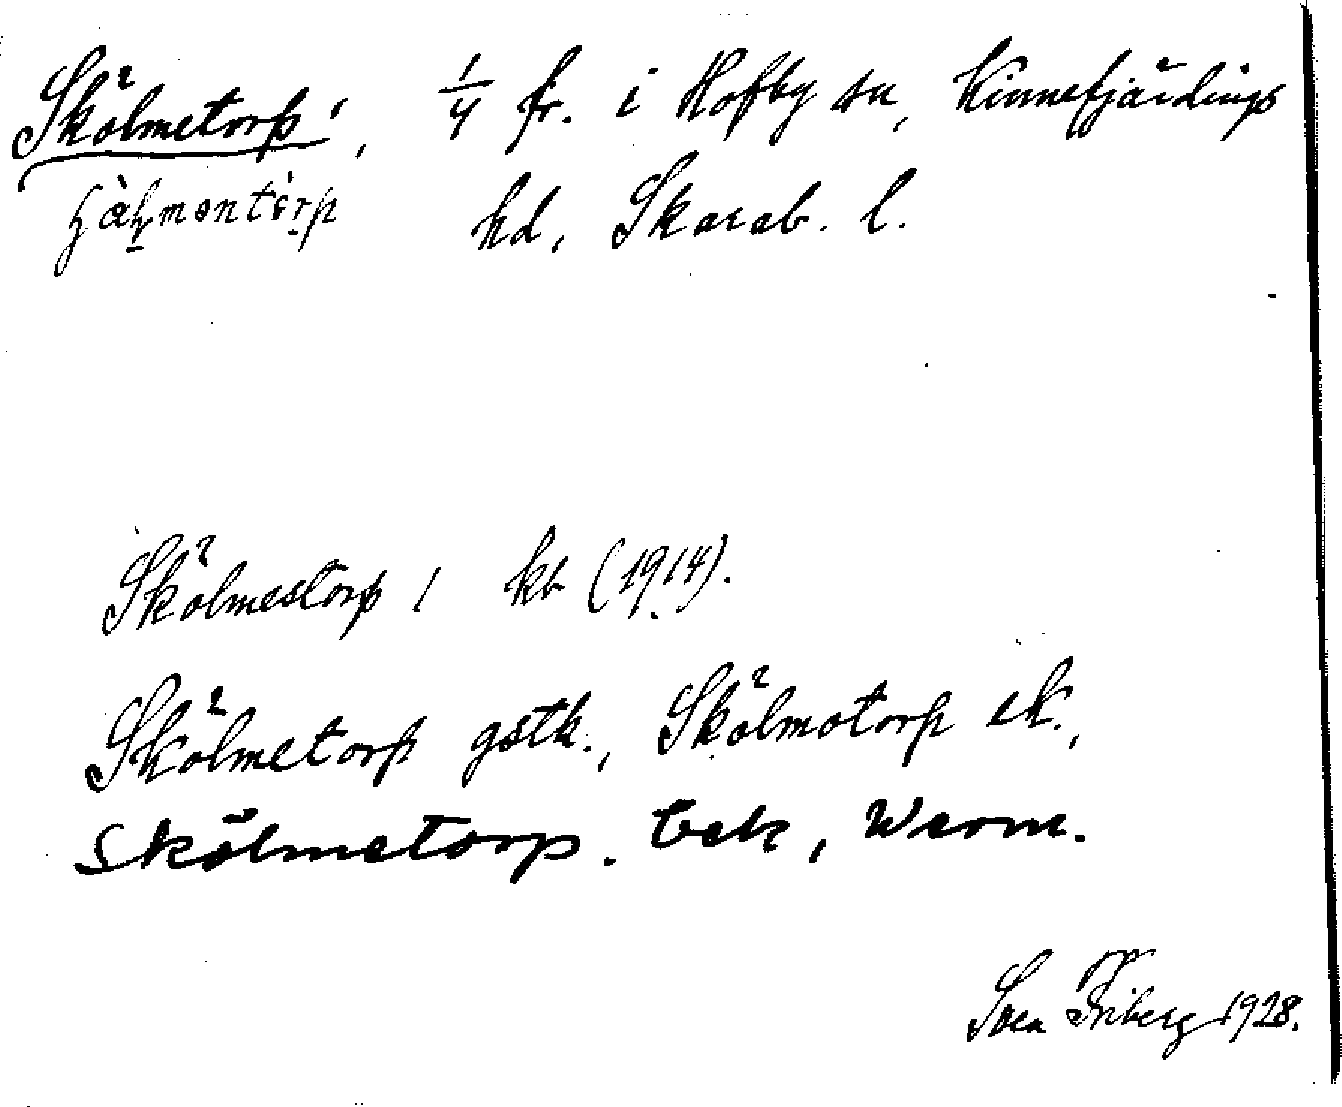 Skölmetorp, 1/4 fr. i Hofby sn, Kinnefjärdings
hd, Skarab. l.
Skölmestorp, kb (1914).
Skölmetorp gstk., Skölmotorp ek.,
Skölmetorp. Gek, Werm.
Sven Friberg 1928.